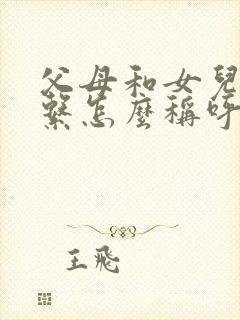 父母和女兒
繫怎麼稱呼
王飛